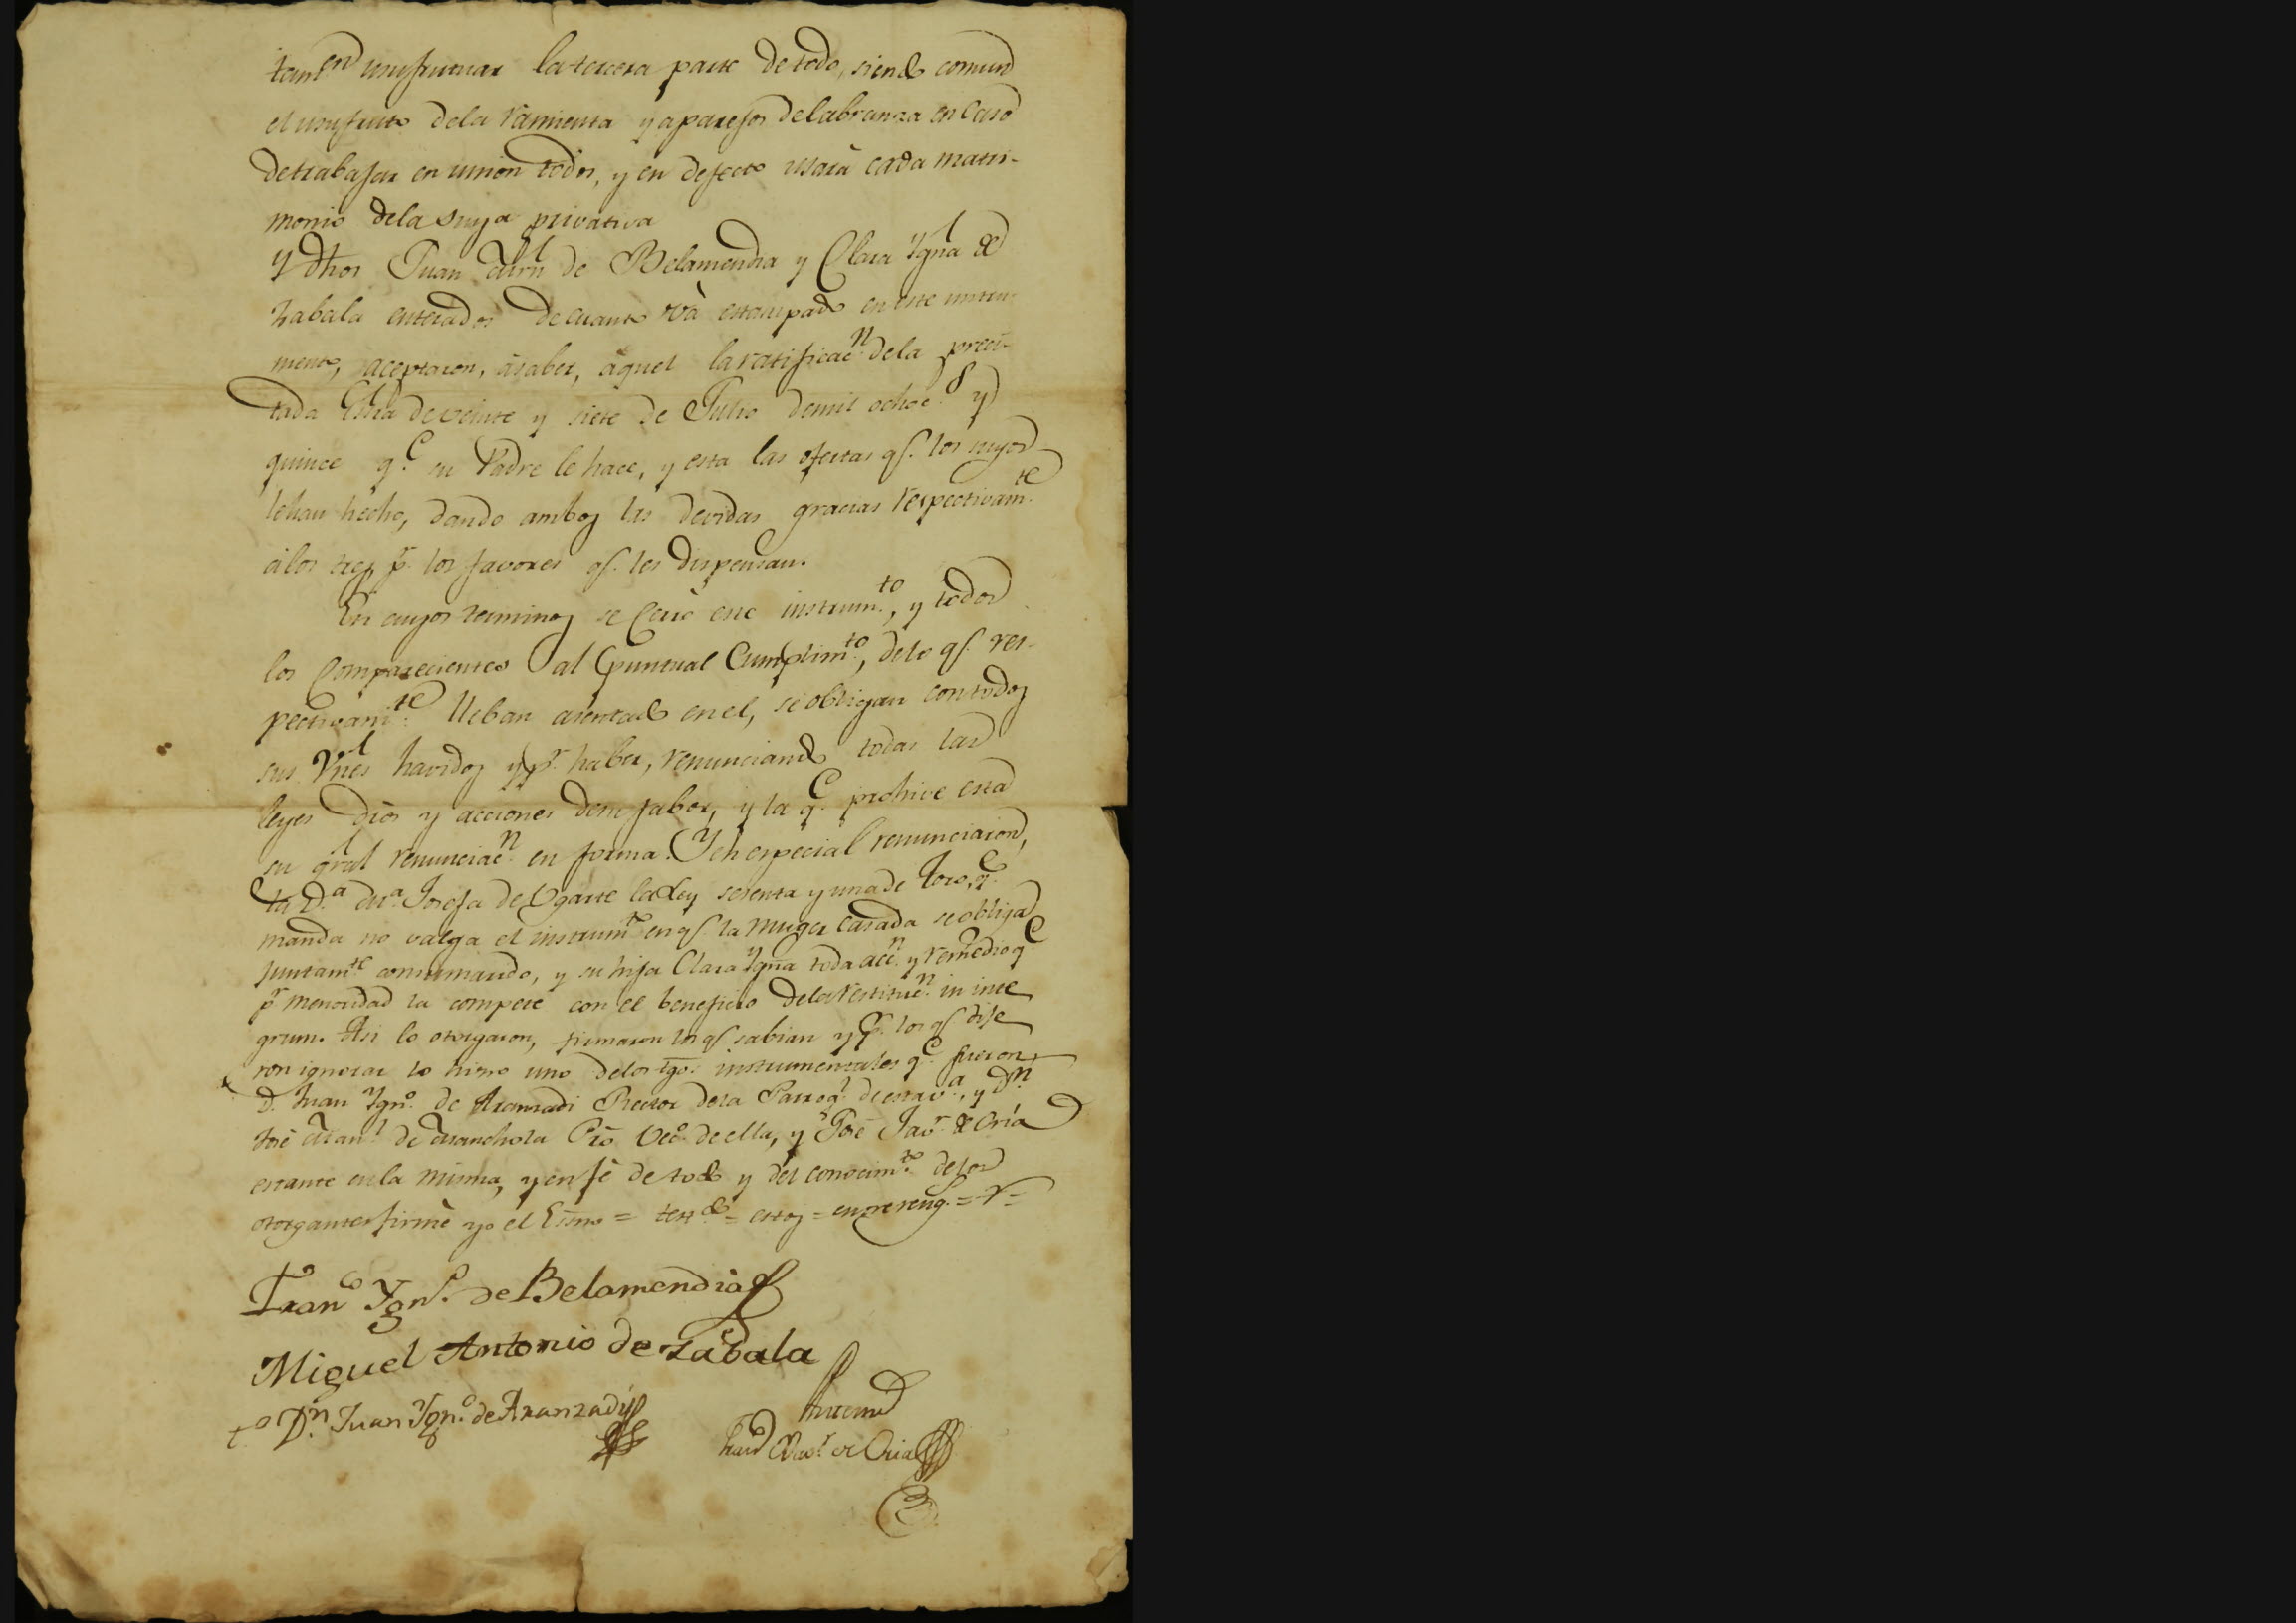 tamᵉⁿ usufrutuar la tercera parte de todo, siendo comun
el usufruto de la rramienta y aparejos de labranza en caso
de trabajar en union todos, y en defecto usará cada matri-
monio de la suya privativa
Y dhos Juan de Belamendia y Clara Ygna de
Zabala enterados de cuanto và estampado en este instru-
mento, aceptaron, à saber, àquel la ratificacⁿ. de la preci-
tada Esra de veinte y siete de Julio de mil ochocˢ. y
quince q.ᵉ su Padre le hace, y esta las ofertas q.ᵉ los suyos
le han hecho, dando ambos las devidas gracias respectivamᵗᵉ.
á los tres pʳ. los favores q.ᵉ les dispensan.
En cuyos terminos se cerró este instrumᵗᵒ., y todos
los comparecientes al puntual cumplimᵗᵒ., de lo q.ᵉ res-
pectivamᵗᵉ. lleban asentado en el, se obligan con todos
sus vnes havidos y pʳ. haber, renunciando todas las
leyes dros y acciones de su fabor, y la q.ᵉ prohive esta
su gral renunciacⁿ. en forma. Y en especial renunciaron,
la D.ᵃ Mᵃ. Josefa de Ugarte la Ley sesenta y una de Toro, q.ᵉ
manda no valga el instrumᵗᵒ en q.ᵉ la muger casada se obliga
juntamᵗᵉ con su marido, y su hija Clara Ygna toda accⁿ. y remedio q.ᵉ
pʳ. menoridad la compete con el beneficio de la restitucⁿ. in inte
grum. Asi lo otorgaron, firmaron los q.ᵉ sabian y pʳ. los q.ᵉ dije
ron ignorar lo hizo uno de los tgos. instrumentales q.ᵉ fueron
D. Juan Ygnº. de Aranzadi Rector de la Parroqˡ. de esta vᵃ., y Dⁿ.
José Manˡ. de Pro Vecº. de ella, y José Javʳ. de Oria
estante en la misma, y en fé de todo y del conocimᵗᵒ. de los
otorgantes firmè yo el Esno = testdo = estos = entrereng. = r =
Franᶜᵒ Ygnº. de Belamendia
Miguel Antonio de Zabala
tº Dⁿ. Juan Ygnº. de Aranzadi
Antemi
Franº Xavʳ. de Oria